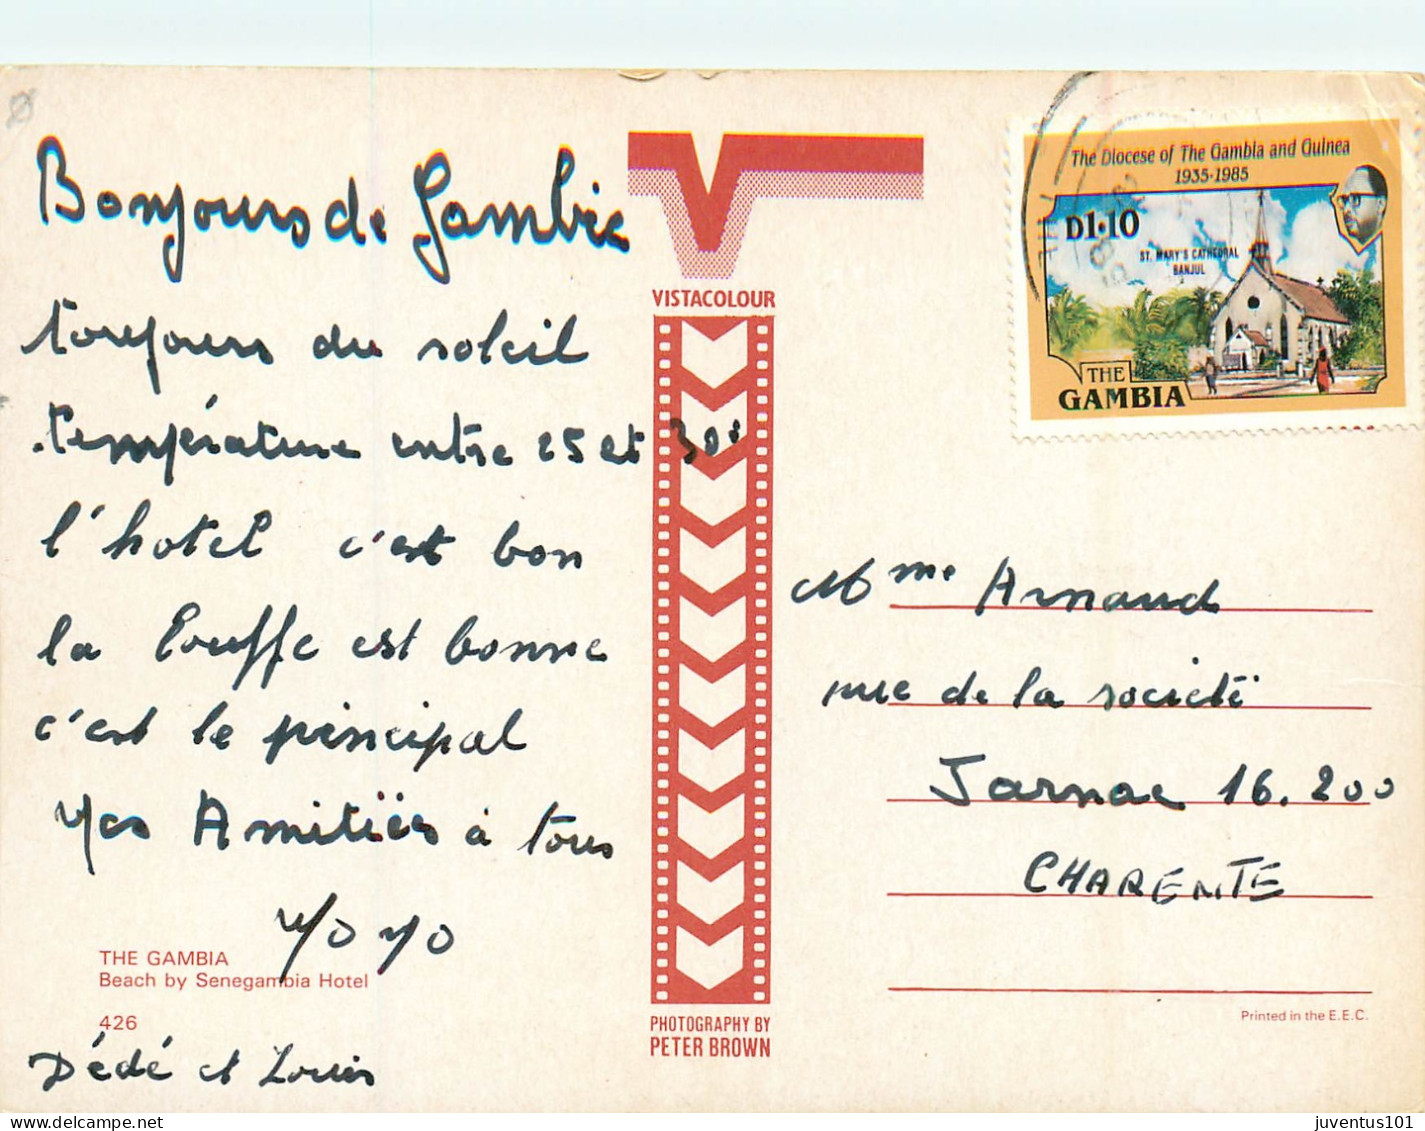 Bonjours de Gambie
toujours du soleil
température entre 25 et 30°
l'hotel c'est bon
la bouffe est bonne
c'est le principal
Amitiés à tous
yoyo
THE GAMBIA
Beach by Senegambia Hotel
426
Dédé et Louis
VISTACOLOUR
PHOTOGRAPHY BY
PETER BROWN
The Diocese of The Gambia and Guinea
1935·1985
D1·10
ST. MARY'S CATHEDRAL
BANJUL
THE
GAMBIA
Mme Arnaud
rue de la societé
Jarnac 16.200
CHARENTE
Printed in the E.E.C.
juventus101